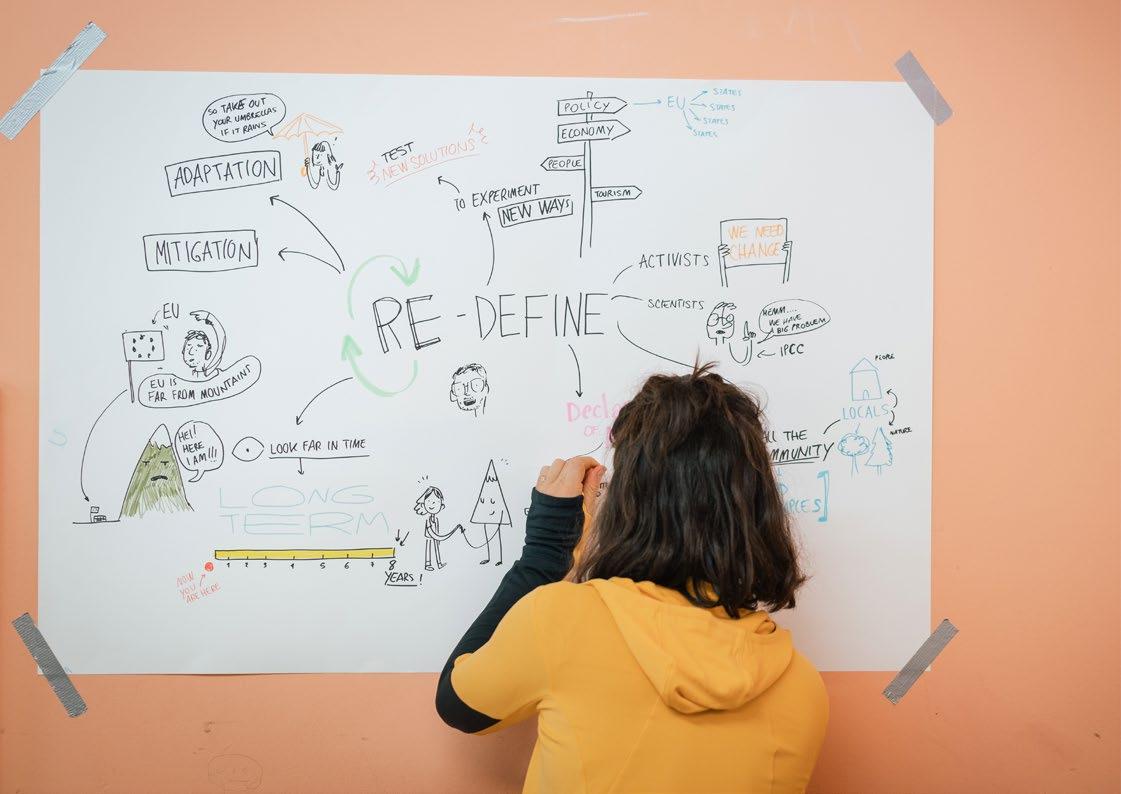 SO TAKE OUT
YOUR UMBRELLAS
IF IT RAINS
ADAPTATION
MITIGATION
TEST
NEW SOLUTIONS
TO EXPERIMENT
NEW WAYS
POLICY
ECONOMY
PEOPLE
TOURISM
EU
STATES
STATES
STATES
STATES
RE-DEFINE
ACTIVISTS
WE NEED
CHANGE
SCIENTISTS
HEMM....
WE HAVE
A BIG PROBLEM
IPCC
EU
EU IS
FAR FROM MOUNTAINS
HEI!
HERE
I AM!!!
LOOK FAR IN TIME
LONG
TERM
1 2 3 4 5 6 7 8
YEARS!
NOW
YOU
ARE HERE
OF
THE
PEOPLE
LOCALS
NATURE